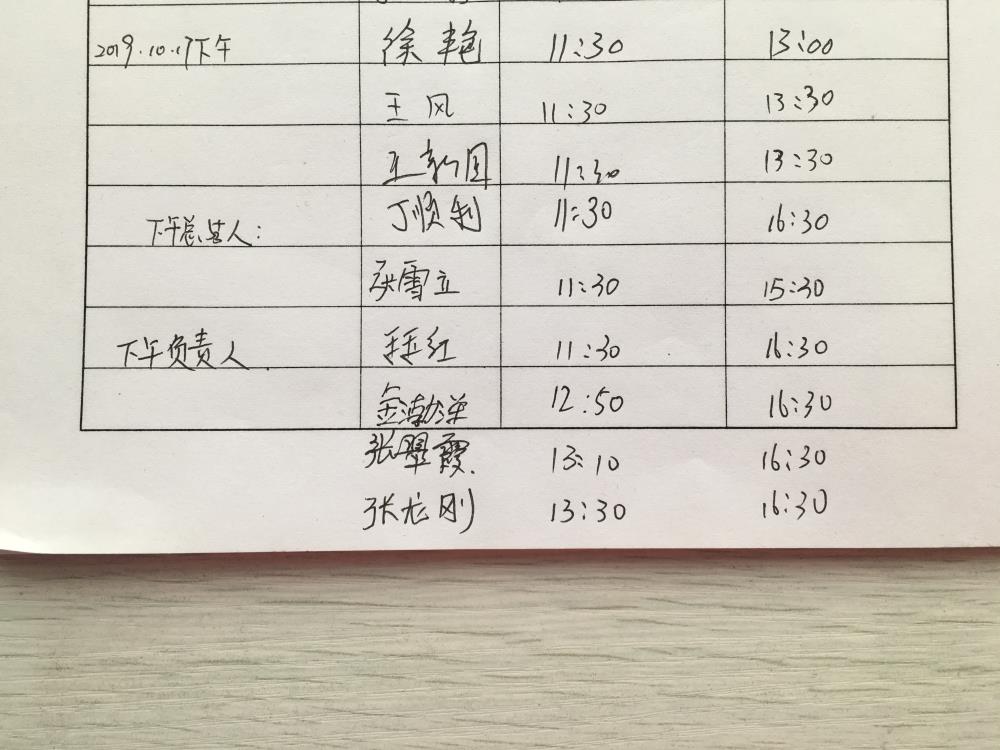 2019.10.17下午 徐艳 11:30 13:00
王风 11:30 13:30
王新国 11:30 13:30
下午总负人: 丁顺利 11:30 16:30
张雪立 11:30 15:30
下午负责人 王红 11:30 16:30
金渤洋 12:50 16:30
张翠霞. 13:10 16:30
张龙刚 13:30 16:30